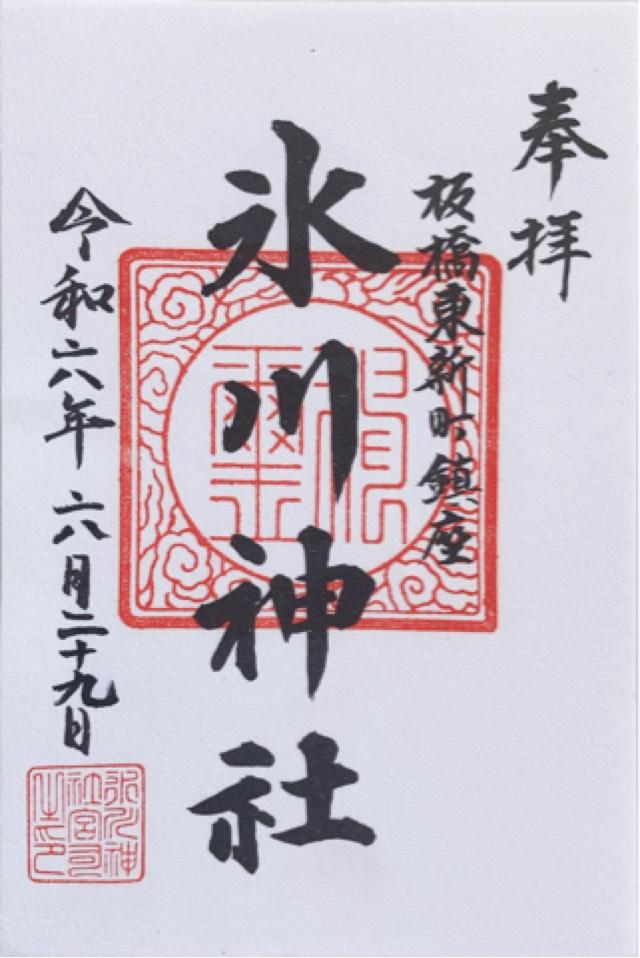 奉拝
板橋東新町鎮座
氷川神社
令和六年 六月二十九日
氷川神
社宮司
之印